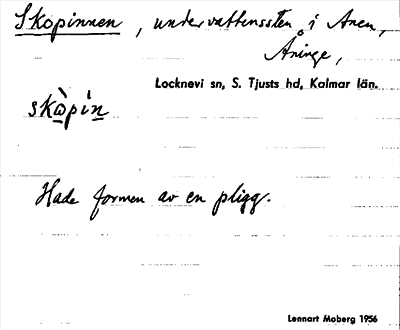 Skopinnen, undervattenssten i Åren,
Åninge,
Locknevi sn, S. Tjusts hd, Kalmar län.
skò̱pin̲
Hade formen av en pligg.
Lennart Moberg 1956